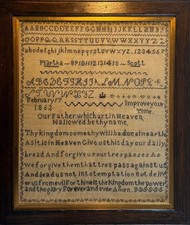 AABBCCDDEEFFGGHHIIJJKKLLMMNN
OOPPQQRRSSTTUUVVWWXXYYZZ
abcdefghijklmnopqrstuvwxyz.123456
Martha 8910111213141516 Scott
ABCDEFGHIJKLMNOPQR
STUVWXYZ
February 17 Improve your
1862 time
Our Father which art in Heaven
Hallowed be thy name
Thy Kingdom come thy will be done in earth
As it is in Heaven Give us this day our daily
bread And forgive us our trespasses as
we forgive them that trespass against us
And lead us not into temptation But deliv
er us from evil For thine is the Kingdom the power
and the glory For ever and ever Amen